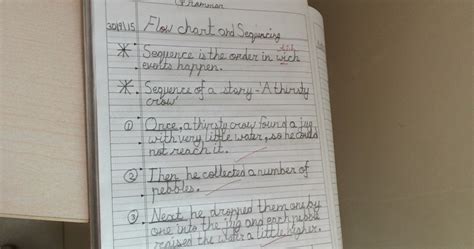 Grammar
30/9/15 Flow chart and Sequencing
* Sequence is the order in wich
events happen.
* Sequence of a story - 'A thirsty
crow'
① Once, a thirsty crow found a jug
with very little water, so he could
not reach it.
② Then, he collected a number of
pebbles.
③ Next, he dropped them one by
one into the jug and each pebble
raised the water a little higher.